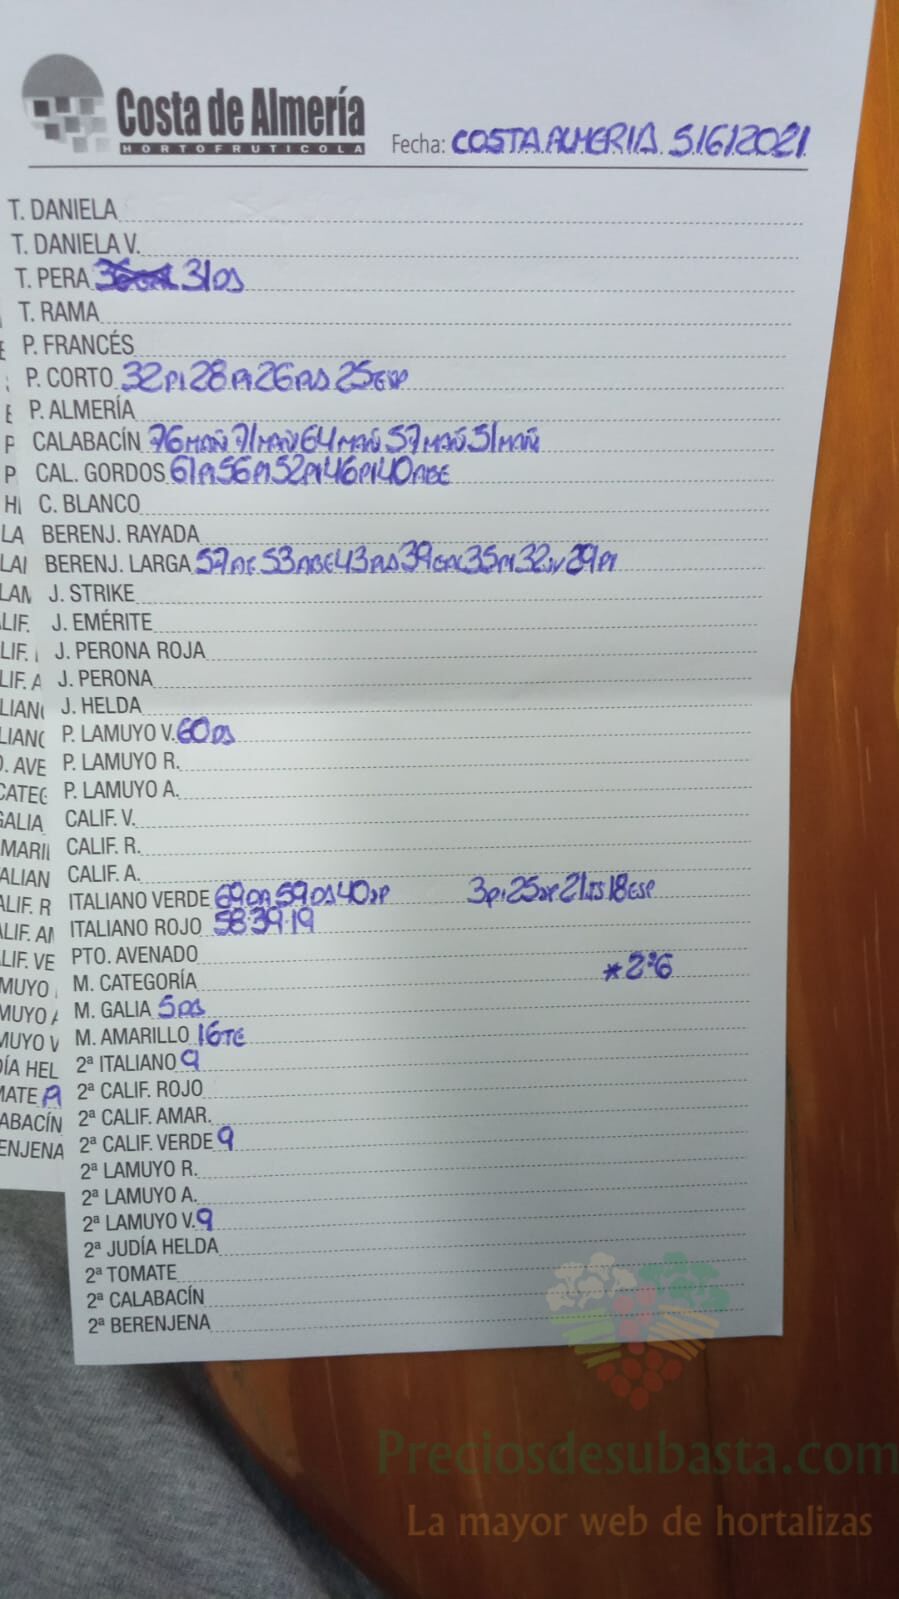 Costa de Almería
HORTOFRUTICOLA
Fecha: COSTA ALMERIA. 5/6/2021
T. DANIELA
T. DANIELA V.
T. PERA 31DS
T. RAMA
P. FRANCÉS
P. CORTO 32PI 28PI 26 25ESP
P. ALMERÍA
CALABACÍN 76MAÑ 71MAÑ 64MAÑ 57MAÑ 51MAÑ
CAL. GORDOS 61PI 56PI 52PI 46PI 40ABE
C. BLANCO
BERENJ. RAYADA
BERENJ. LARGA 57 53ABE 43 39 35PI 32 29PI
J. STRIKE
J. EMÉRITE
J. PERONA ROJA
J. PERONA
J. HELDA
P. LAMUYO V. 60DS
P. LAMUYO R.
P. LAMUYO A.
CALIF. V.
CALIF. R.
CALIF. A.
ITALIANO VERDE 69 59DS 40 25 21 18ESP
ITALIANO ROJO 58·39·19
PTO. AVENADO
M. CATEGORÍA
M. GALIA 5DS
M. AMARILLO 16TE
2ª ITALIANO 9
2ª CALIF. ROJO
2ª CALIF. AMAR.
2ª CALIF. VERDE 9
2ª LAMUYO R.
2ª LAMUYO A.
2ª LAMUYO V. 9
2ª JUDÍA HELDA
2ª TOMATE
2ª CALABACÍN
2ª BERENJENA
Preciosdesubasta.com
La mayor web de hortalizas